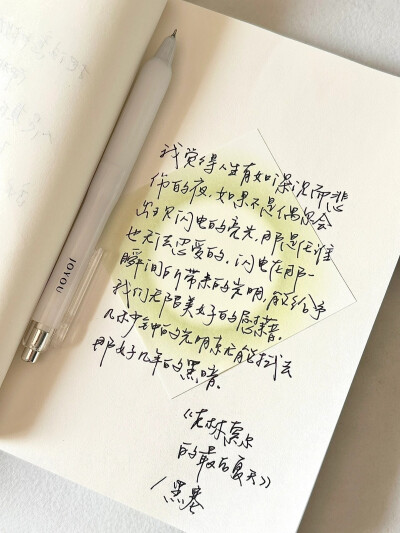 我觉得人生有如深沉而悲
伤的夜,如果不是偶尔会
出现闪电的亮光,那是任谁
也无法忍受的,闪电在那一
瞬间所带来的光明,能给予
我们无限美好的慰藉。
几秒钟的光明就能拭去
那好几年的黑暗。
《克林索尔
的最后夏天》
/黑塞
JOYOU